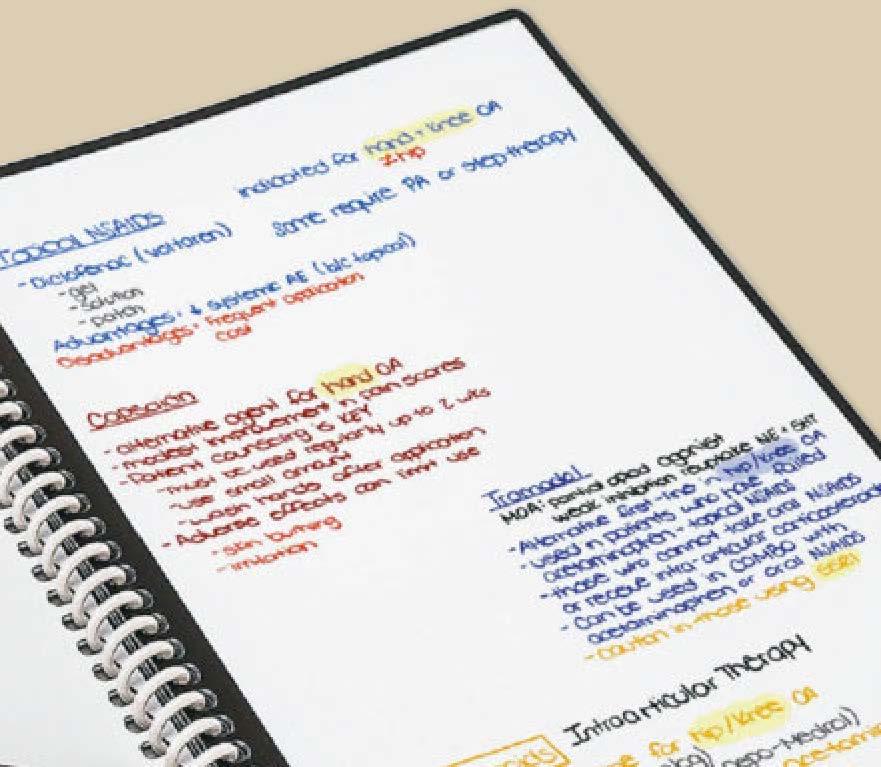 Topical NSAIDs
indicated for hand + knee OA
≠ hip
- Diclofenac (voltaren)
Some require PA or step therapy
- gel
- solution
- patch
Advantages: ↓ systemic AE (b/c topical)
Disadvantages: frequent application
cost
Capsaicin
- alternative agent for hand OA
- modest improvement in pain scores
- Patient counseling is KEY
- must be used regularly up to 2 wks
- use small amount
- wash hands after application
- Adverse effects can limit use
- skin burning
- irritation
Tramadol
MOA: partial opioid agonist
weak inhibition reuptake NE + 5HT
- Alternative first-line in hip/knee OA
- used in patients who have failed
acetaminophen + topical NSAIDs
- those who cannot take oral NSAIDs
or receive intra-articular
- Can be used in COMBO with
acetaminophen or oral NSAIDS
- caution in those using SSRI
Intraarticular Therapy
for hip/knee OA
Depo-Medrol)